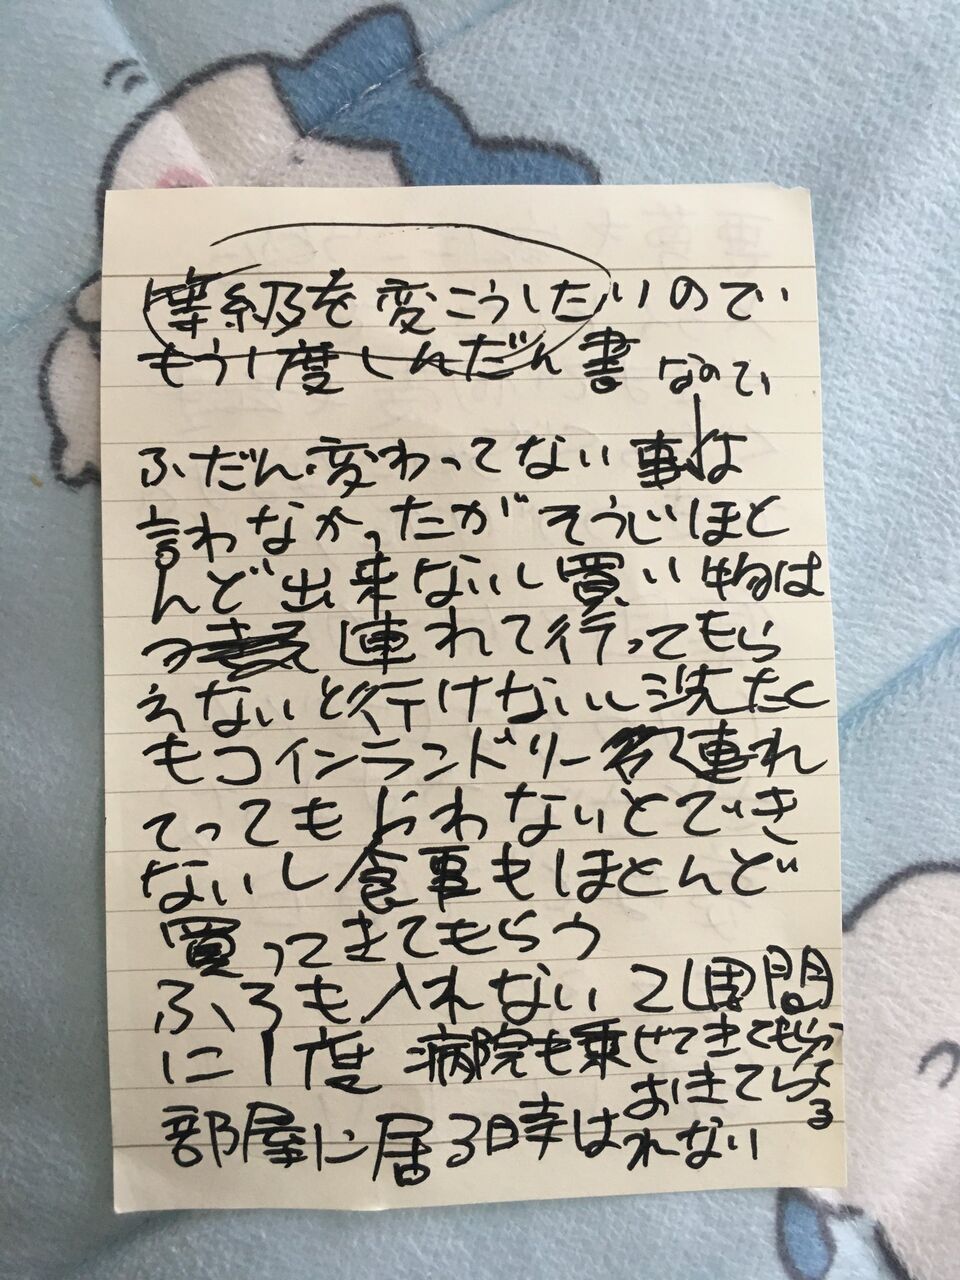 等級を変こうしたいので
もう1度しんだん書 なので
ふだん変わってない事は
言わなかったがそうじほと
んど出来ないし買い物は
連れて行ってもら
えないと行けないし洗たく
もコインランドリー連れ
てってもらわないとでき
ないし食事もほとんど
買ってきてもらう
ふろも入れない 2週間
に1度 病院も乗せてきてもらってる
部屋に居る時はおきてら
れない